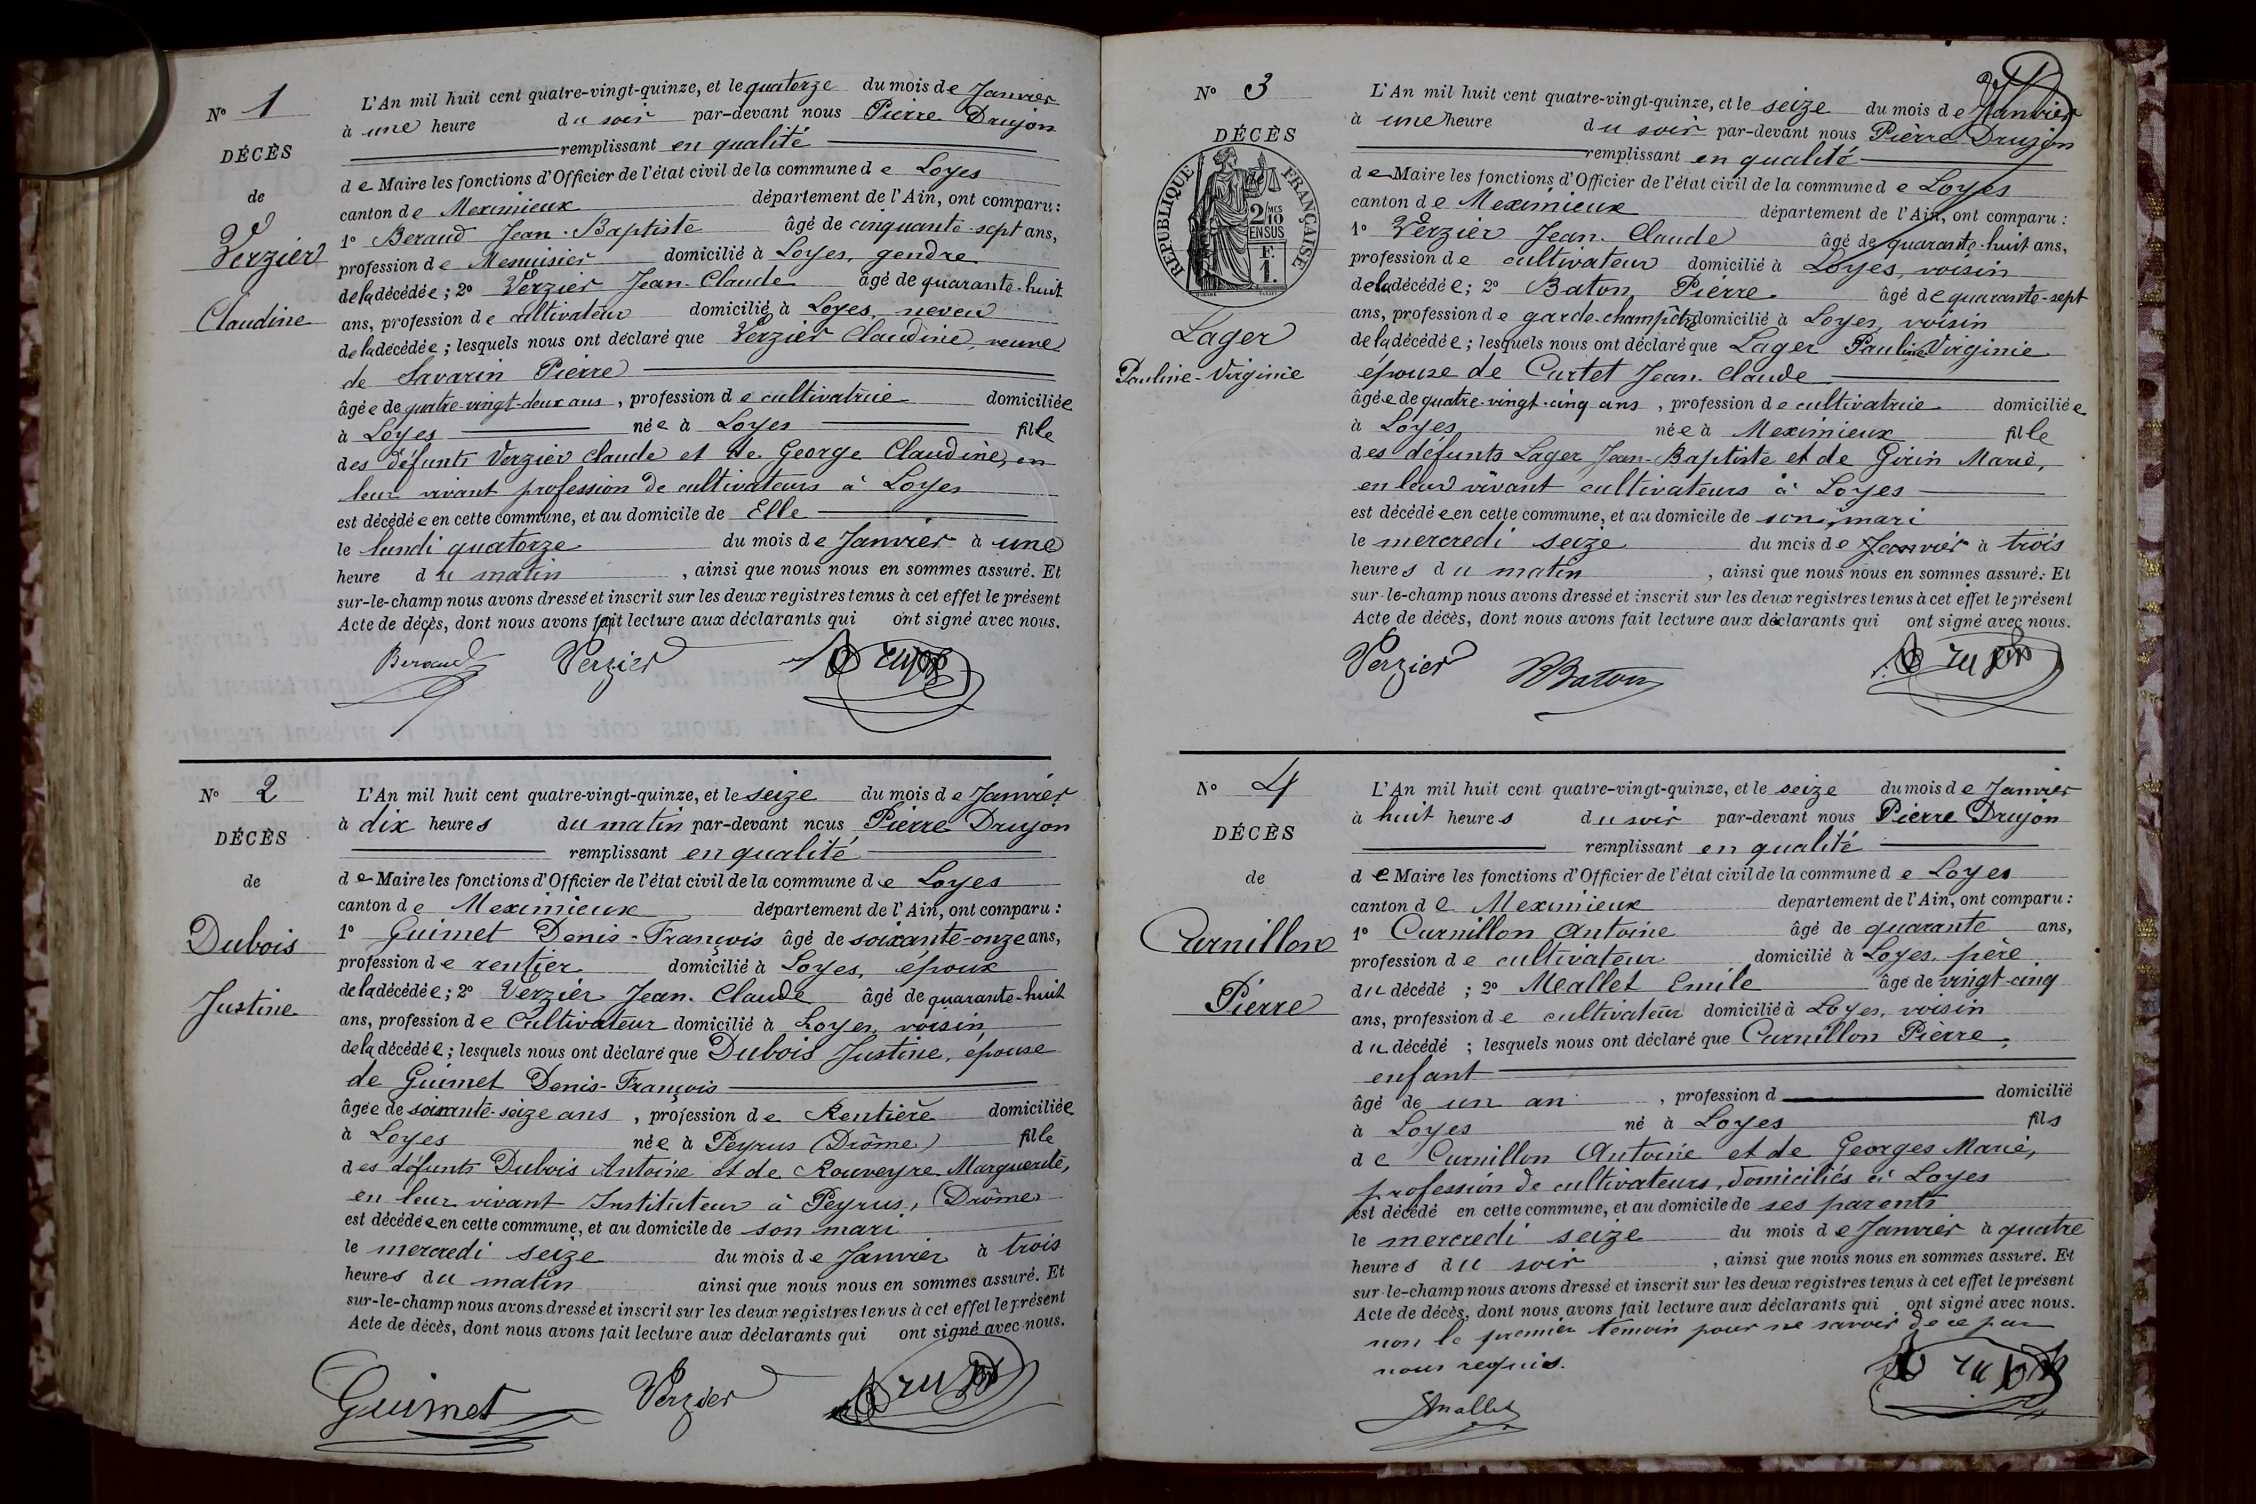 N° 1
DÉCÈS
de
Verzier
Claudine
L'An mil huit cent quatre-vingt-quinze, et le quatorze du mois de Janvier
à une heure du soir par-devant nous Pierre Drujon
remplissant en qualité
de Maire les fonctions d'Officier de l'état civil de la commune de Loyes
canton de Meximieux département de l'Ain, ont comparu :
1° Beraud Jean-Baptiste âgé de cinquante-sept ans,
profession de Menuisier domicilié à Loyes, gendre
de la décédée ; 2° Verzier Jean-Claude âgé de quarante-huit
ans, profession de cultivateur domicilié à Loyes, neveu
de la décédée ; lesquels nous ont déclaré que Verzier Claudine, veuve
de Savarin Pierre
âgée de quatre-vingt-deux ans, profession de cultivatrice domiciliée
à Loyes née à Loyes fille
des défunts Verzier Claude et de George Claudine, en
leur vivant profession de cultivateurs à Loyes
est décédée en cette commune, et au domicile de Elle
le lundi quatorze du mois de Janvier à une
heure du matin, ainsi que nous nous en sommes assuré. Et
sur-le-champ nous avons dressé et inscrit sur les deux registres tenus à cet effet le présent
Acte de décès, dont nous avons fait lecture aux déclarants qui ont signé avec nous.
Beraud Verzier Drujon
N° 2
DÉCÈS
de
Dubois
Justine
L'An mil huit cent quatre-vingt-quinze, et le seize du mois de Janvier
à dix heures du matin par-devant nous Pierre Drujon
remplissant en qualité
de Maire les fonctions d'Officier de l'état civil de la commune de Loyes
canton de Meximieux département de l'Ain, ont comparu :
1° Guimet Denis-François âgé de soixante-onze ans,
profession de rentier domicilié à Loyes, époux
de la décédée ; 2° Verzier Jean-Claude âgé de quarante-huit
ans, profession de Cultivateur domicilié à Loyes, voisin
de la décédée ; lesquels nous ont déclaré que Dubois Justine, épouse
de Guimet Denis-François
âgée de soixante-seize ans, profession de Rentière domiciliée
à Loyes née à Peyrus (Drôme) fille
des défunts Dubois Antoine et de Rouveyre Marguerite,
en leur vivant Instituteur à Peyrus, (Drôme)
est décédée en cette commune, et au domicile de son mari
le mercredi seize du mois de Janvier à trois
heures du matin ainsi que nous nous en sommes assuré. Et
sur-le-champ nous avons dressé et inscrit sur les deux registres tenus à cet effet le présent
Acte de décès, dont nous avons fait lecture aux déclarants qui ont signé avec nous.
Guimet Verzier Drujon
N° 3
DÉCÈS
RÉPUBLIQUE FRANÇAISE
2 MES
10
EN SUS
F.
1
Lager
Pauline-Virginie
L'An mil huit cent quatre-vingt-quinze, et le seize du mois de Janvier
à une heure du soir par-devant nous Pierre Drujon
remplissant en qualité
de Maire les fonctions d'Officier de l'état civil de la commune de Loyes
canton de Meximieux département de l'Ain, ont comparu :
1° Verzier Jean-Claude âgé de quarante-huit ans,
profession de cultivateur domicilié à Loyes, voisin
de la décédée ; 2° Baton Pierre âgé de quarante-sept
ans, profession de garde-champêtre domicilié à Loyes, voisin
de la décédée ; lesquels nous ont déclaré que Lager Pauline Virginie
épouse de Curtet Jean-Claude
âgée de quatre-vingt-cinq ans, profession de cultivatrice domiciliée
à Loyes née à Meximieux fille
des défunts Lager Jean-Baptiste et de Girin Marie,
en leur vivant cultivateurs à Loyes
est décédée en cette commune, et au domicile de son mari
le mercredi seize du mois de Janvier à trois
heures du matin, ainsi que nous nous en sommes assuré. Et
sur-le-champ nous avons dressé et inscrit sur les deux registres tenus à cet effet le présent
Acte de décès, dont nous avons fait lecture aux déclarants qui ont signé avec nous.
Verzier Baton Drujon
N° 4
DÉCÈS
de
Curnillon
Pierre
L'An mil huit cent quatre-vingt-quinze, et le seize du mois de Janvier
à huit heures du soir par-devant nous Pierre Drujon
remplissant en qualité
de Maire les fonctions d'Officier de l'état civil de la commune de Loyes
canton de Meximieux departement de l'Ain, ont comparu :
1° Curnillon Antoine âgé de quarante ans,
profession de cultivateur domicilié à Loyes, père
du décédé ; 2° Mallet Emile âgé de vingt-cinq
ans, profession de cultivateur domicilié à Loyes, voisin
du décédé ; lesquels nous ont déclaré que Curnillon Pierre,
enfant
âgé de un an, profession d domicilié
à Loyes né à Loyes fils
de Curnillon Antoine et de Georges Marie,
profession de cultivateurs, domiciliés à Loyes
est décédé en cette commune, et au domicile de ses parents
le mercredi seize du mois de Janvier à quatre
heures du soir, ainsi que nous nous en sommes assuré. Et
sur-le-champ nous avons dressé et inscrit sur les deux registres tenus à cet effet le présent
Acte de décès, dont nous avons fait lecture aux déclarants qui ont signé avec nous.
non le premier témoin pour ne savoir de ce par
nous requis.
Mallet Drujon